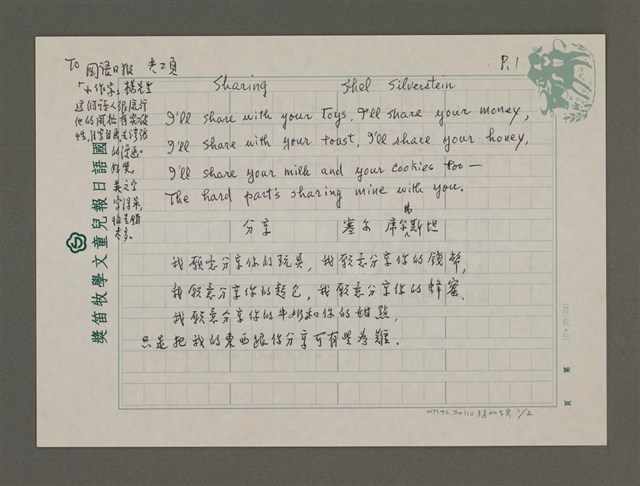 To 國語日報 共2頁
P.1
「小作家」楊先生
這個詩人很流行
他的風格有突破
性,
的漫画。
好笑。
英文字
寫得呆,
怕
太多。
Sharing Shel Silverstein
I'll share with your toys, I'll share your money,
I'll share with your toast, I'll share your honey,
I'll share your milk and your cookies too—
The hard part's sharing mine with you.
分享 塞尔 席弗尔斯坦
我願意分享你的玩具,我願意分享你的錢幣,
我願意分享你的麪包,我願意分享你的蜂蜜,
我願意分享你的牛奶和你的甜點,
只是把我的東西跟你分享可有點為難.
國語日報兒童文學牧笛獎
第 頁
NMTL20110380058 1/2